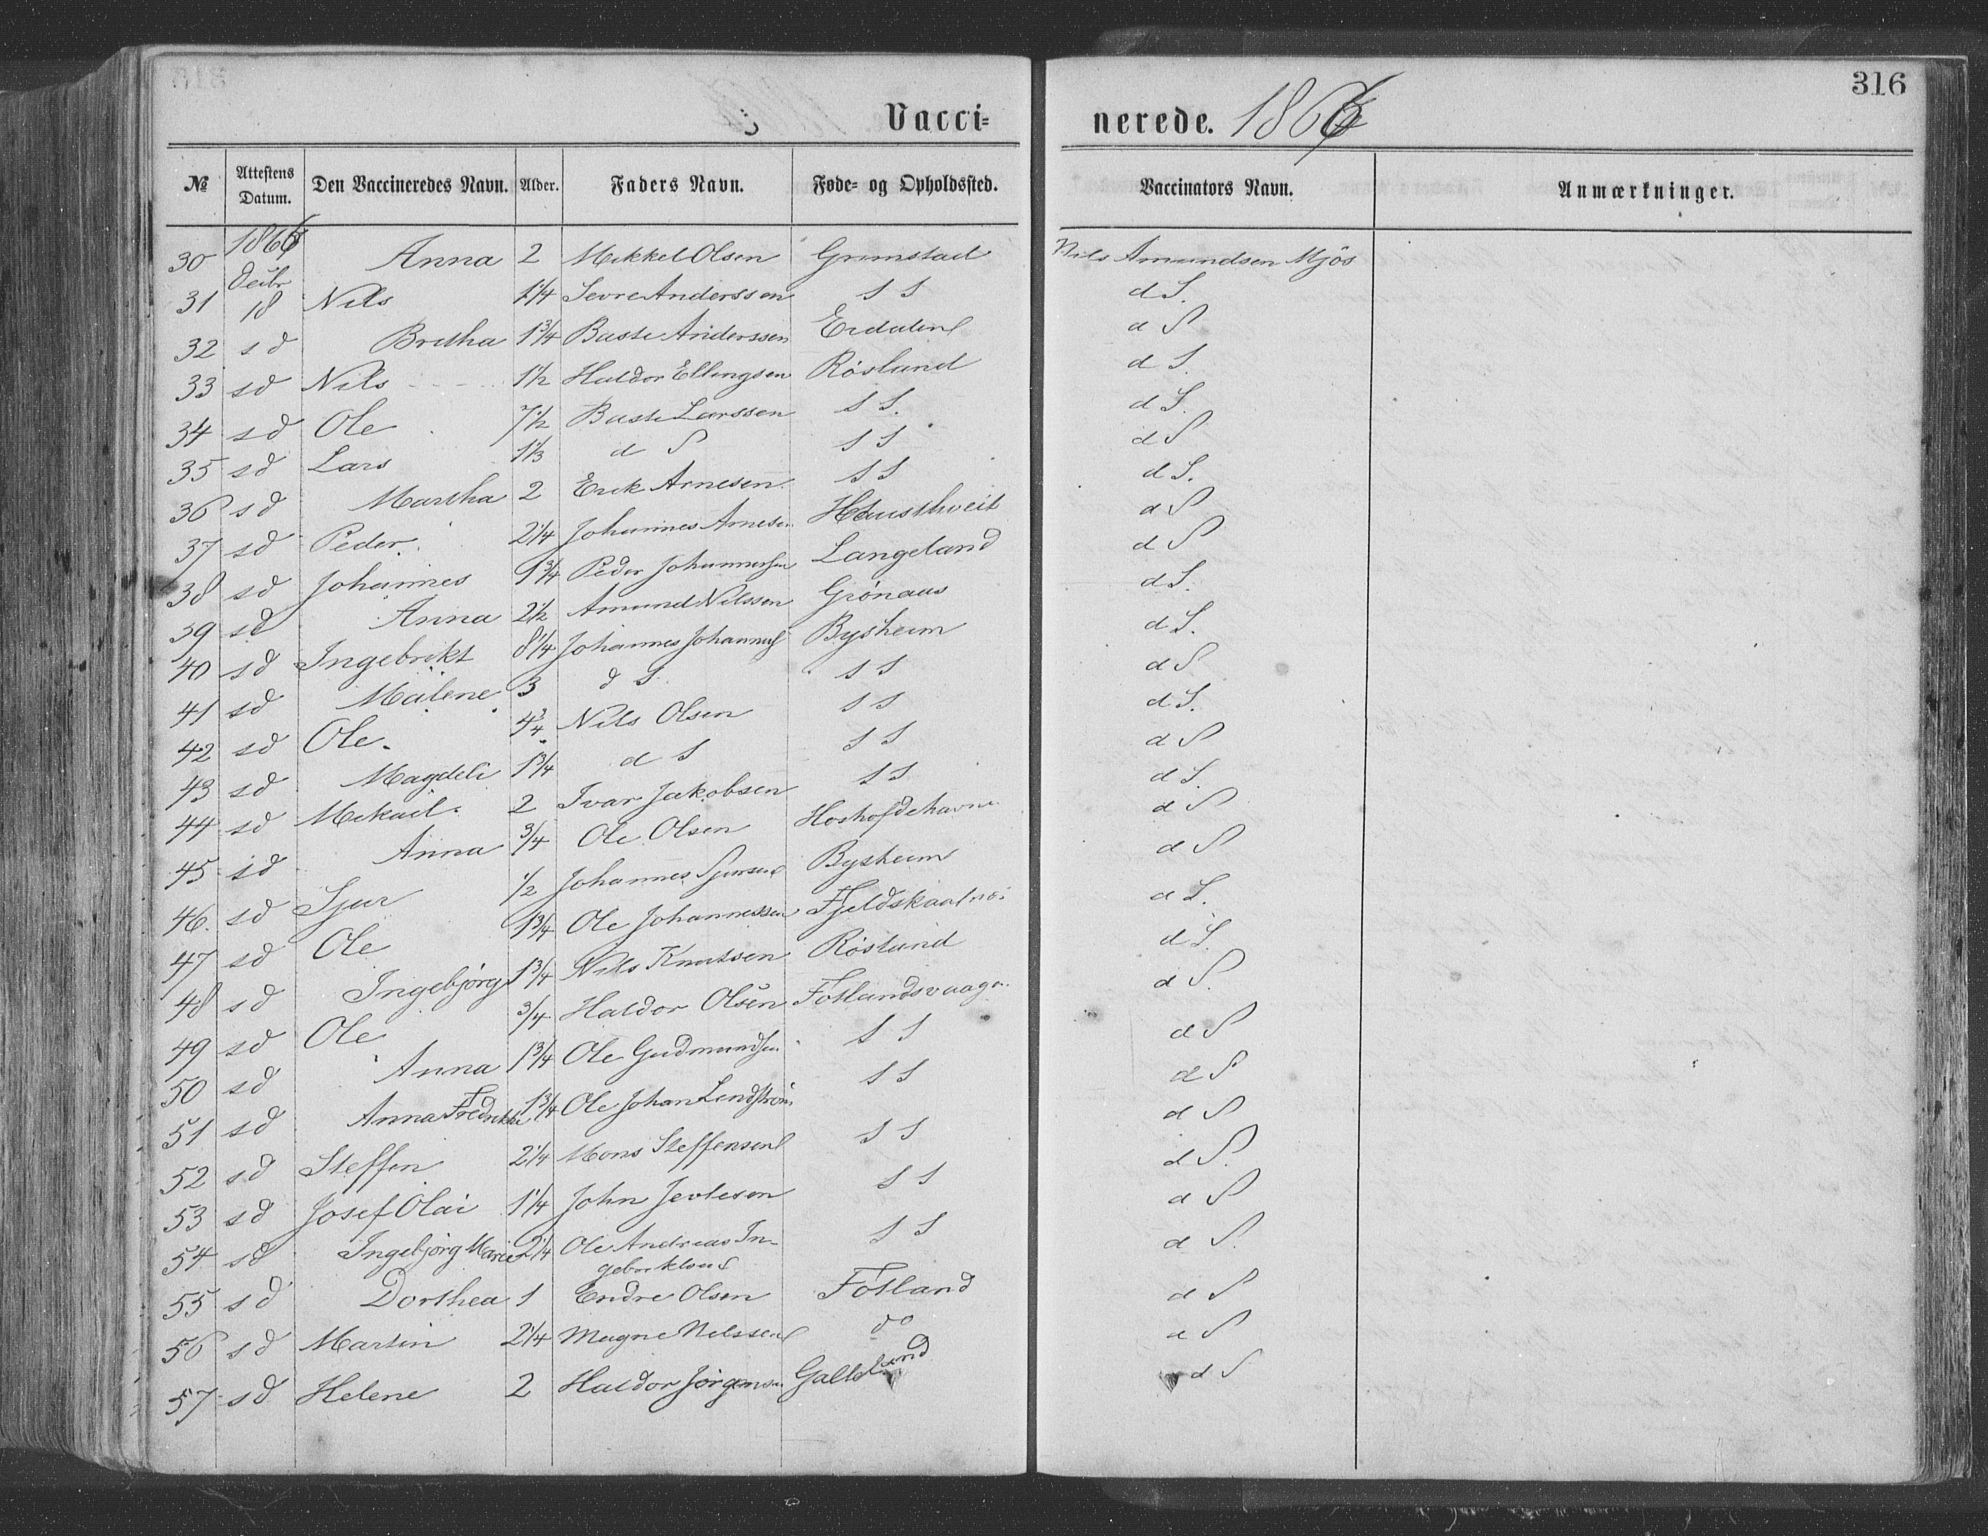 316
Vacci= nerede. 1866
№ Attestens Datum. Den Vaccineredes Navn. Alder. Faders Navn. Føde= og Opholdssted. Vaccinators Navn. Anmærkninger.
1866
30 Anna 2 Mikkel Olsen Grimstad Nils Amundsen Mjös
31 18 Nils 1 1/4 Sevre Anderssen S S d S.
32 s d Britha 1 3/4 Baste Anderssen Eidalen d S
33 s d Nils 1 1/2 Haldor Ellingsen Röslund d S.
34 s d Ole 7 1/2 Baste Larssen S S. d S.
35 s d Lars 1 1/3 d S S S d S
36 s d Martha 2 Erik Arnesen S S d S.
37 s d Peder 2 1/4 Johannes Arnesen Hausthveit d S
38 s d Johannes 9 3/4 Peder Johannessen Langeland d S
39 s d Anna 2 1/2 Amund Nilssen Grönaas d S.
40 s d Ingebrikt 8 1/4 Johannes Johannes Bysheim d S.
41 s d Malene 3 d S. S S d S
42 s d Ole 4 3/4 Nils Olsen S S d S.
43 s d Magdeli 1 3/4 d S S S d S
44 s d Mikael 2 Ivar Jakobsen S S d S.
45 s d Anna 3/4 Ole Olsen d S
46. s d Sjur 1/2 Johannes Sjursen Bysheim d S
47 s d Ole 1 3/4 Ole Johannessen d S.
48 s d Ingebjörg 1 3/4 Nils Knutsen Röslund d S.
49 s d Ole 3/4 Haldor Olsen Fötlandsvaagen d S.
50 s d Anna 1 3/4 Ole Gudmundsen S S d S
51 s d Anna Fredrikke 1 3/4 Ole Johan Lendström S S d S
52 s d Steffen 2 1/4 Mons Steffensen S S d S
53 s d Josef Olai 1 1/4 John Jevtesen S S d S.
54 s d Ingebjörg Marie 2 1/4 Ole Andreas In- S S d S
gebriktsen d S.
55 s d Dorthea 1 Endre Olsen Fötland d S
56 s d Martin 2 1/4 Magne Nilssen do d S
57 s d Helene 2 Haldor Jörgensen d S